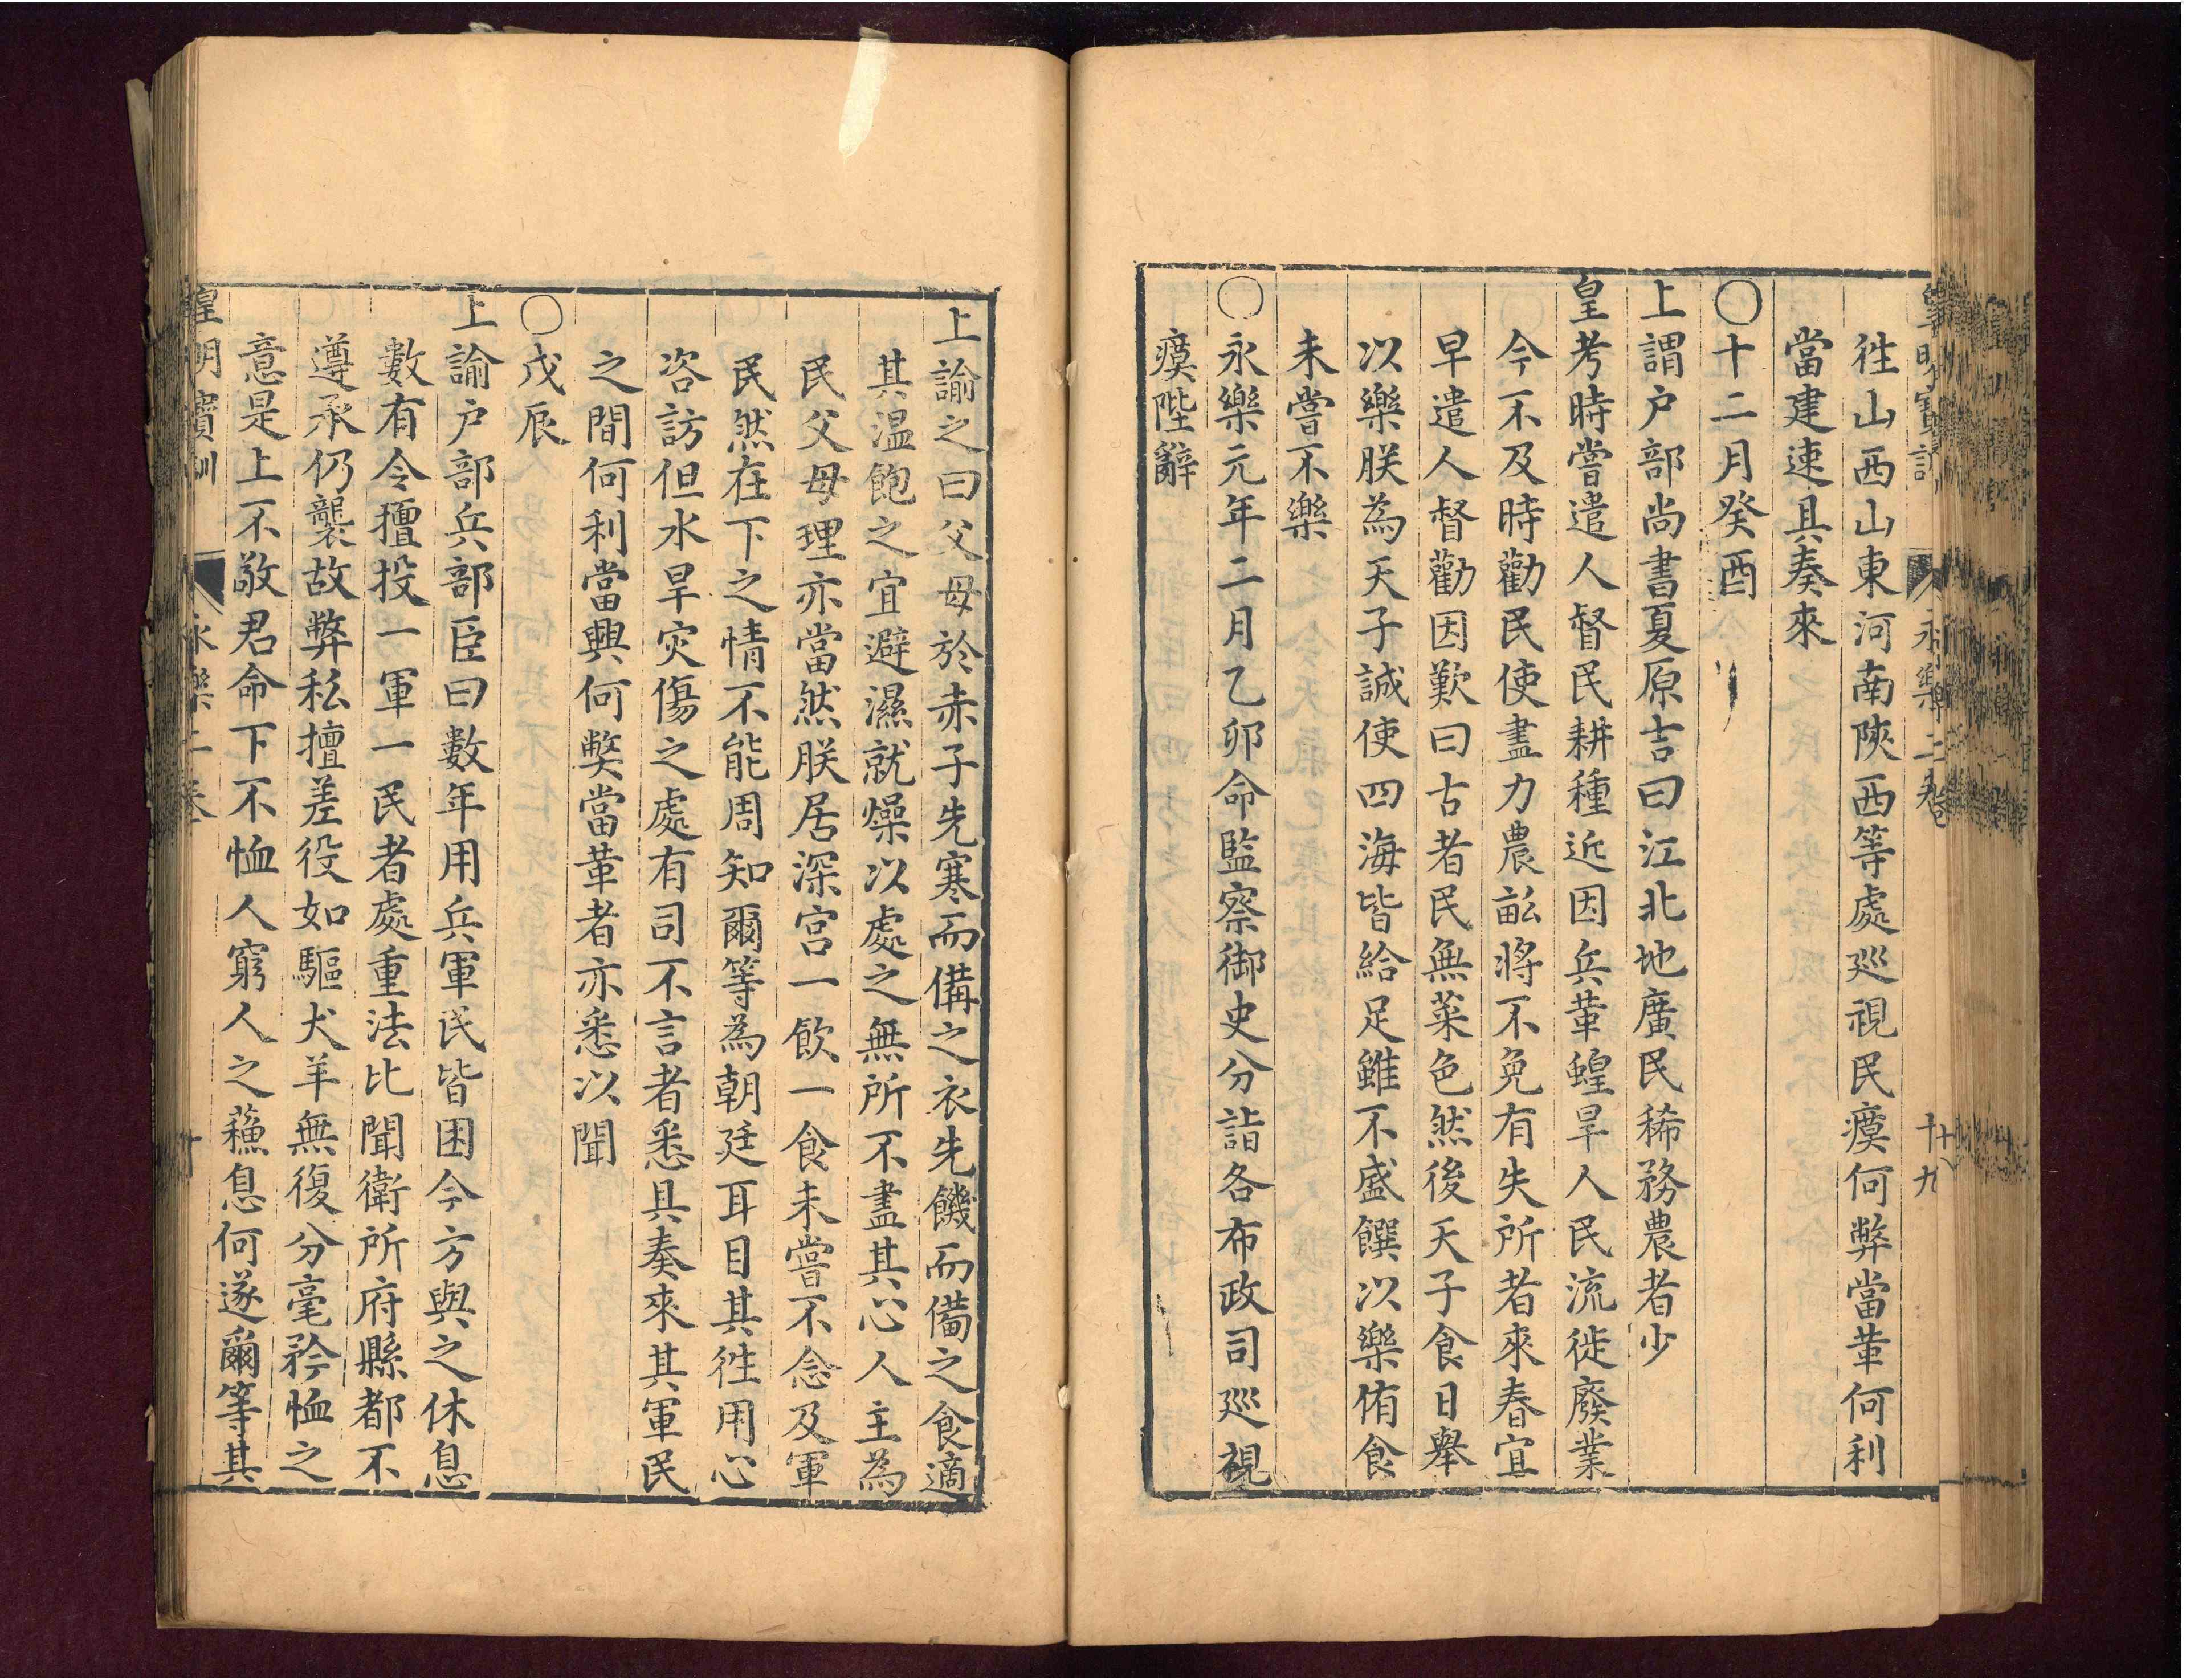 皇明寶訓 永樂二卷 十九
徃山西山東河南陝西等處廵視民瘼何弊當革何利
當建速具奏來
〇十二月癸酉
上謂户部尚書夏原吉曰江北地廣民稀務農者少
皇考時嘗遣人督民耕種近因兵革蝗旱人民流徙廢業
今不及時勸民使盡力農畆將不免有失所者來春宜
早遣人督勸因歎曰古者民無菜色然後天子食日舉
以樂朕為天子誠使四海皆給足雖不盛饌以樂侑食
未嘗不樂
〇永樂元年二月乙卯命監察御史分詣各布政司廵視
瘼陛辭
上諭之曰父母於赤子先寒而備之衣先饑而備之食適
其温飽之宜避濕就燥以處之無所不盡其心人主為
民父母理亦當然朕居深宫一飲一食未嘗不念及軍
民然在下之情不能周知爾等為朝廷耳目其徃用心
咨訪但水旱災傷之處有司不言者悉具奏來其軍民
之間何利當興何弊當革者亦悉以聞
〇戊辰
上諭户部兵部臣曰數年用兵軍民皆困今方與之休息
數有令擅投一軍一民者處重法比聞衛所府縣都不
遵承仍襲故弊私擅差役如驅犬羊無復分毫矜恤之
意是上不敬君命下不恤人窮人之蘓息何遂爾等其
皇明寶訓 永樂二卷